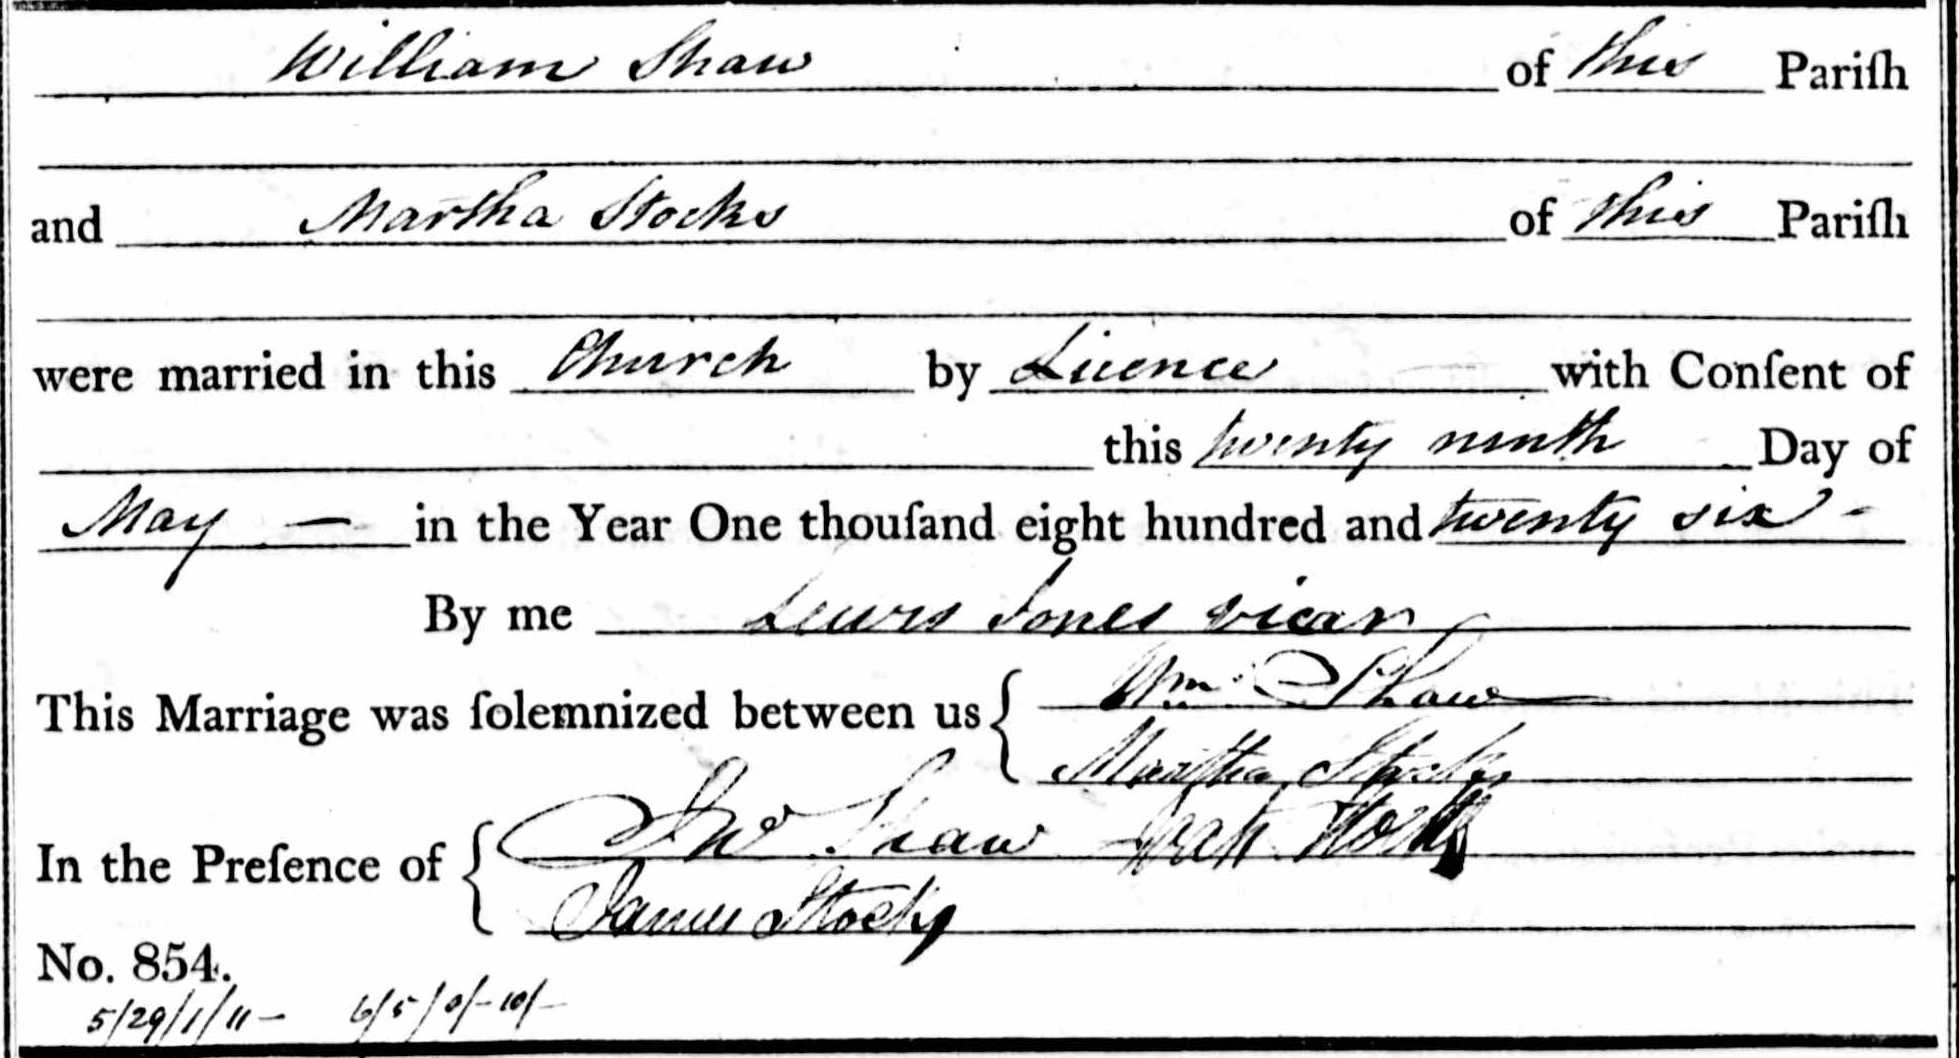 William Shaw of this Pariſh
and Martha Stocks of this Pariſh
were married in this Church by Licence with Conſent of
this twenty ninth Day of
May — in the Year One thouſand eight hundred and twenty six -
By me Lewis Jones vicar
This Marriage was ſolemnized between us { Wm. Shaw
Martha Stocks
In the Preſence of { Jno Shaw
James Stocks
No. 854.
5/29/1/11- 6/5/0/-10/-